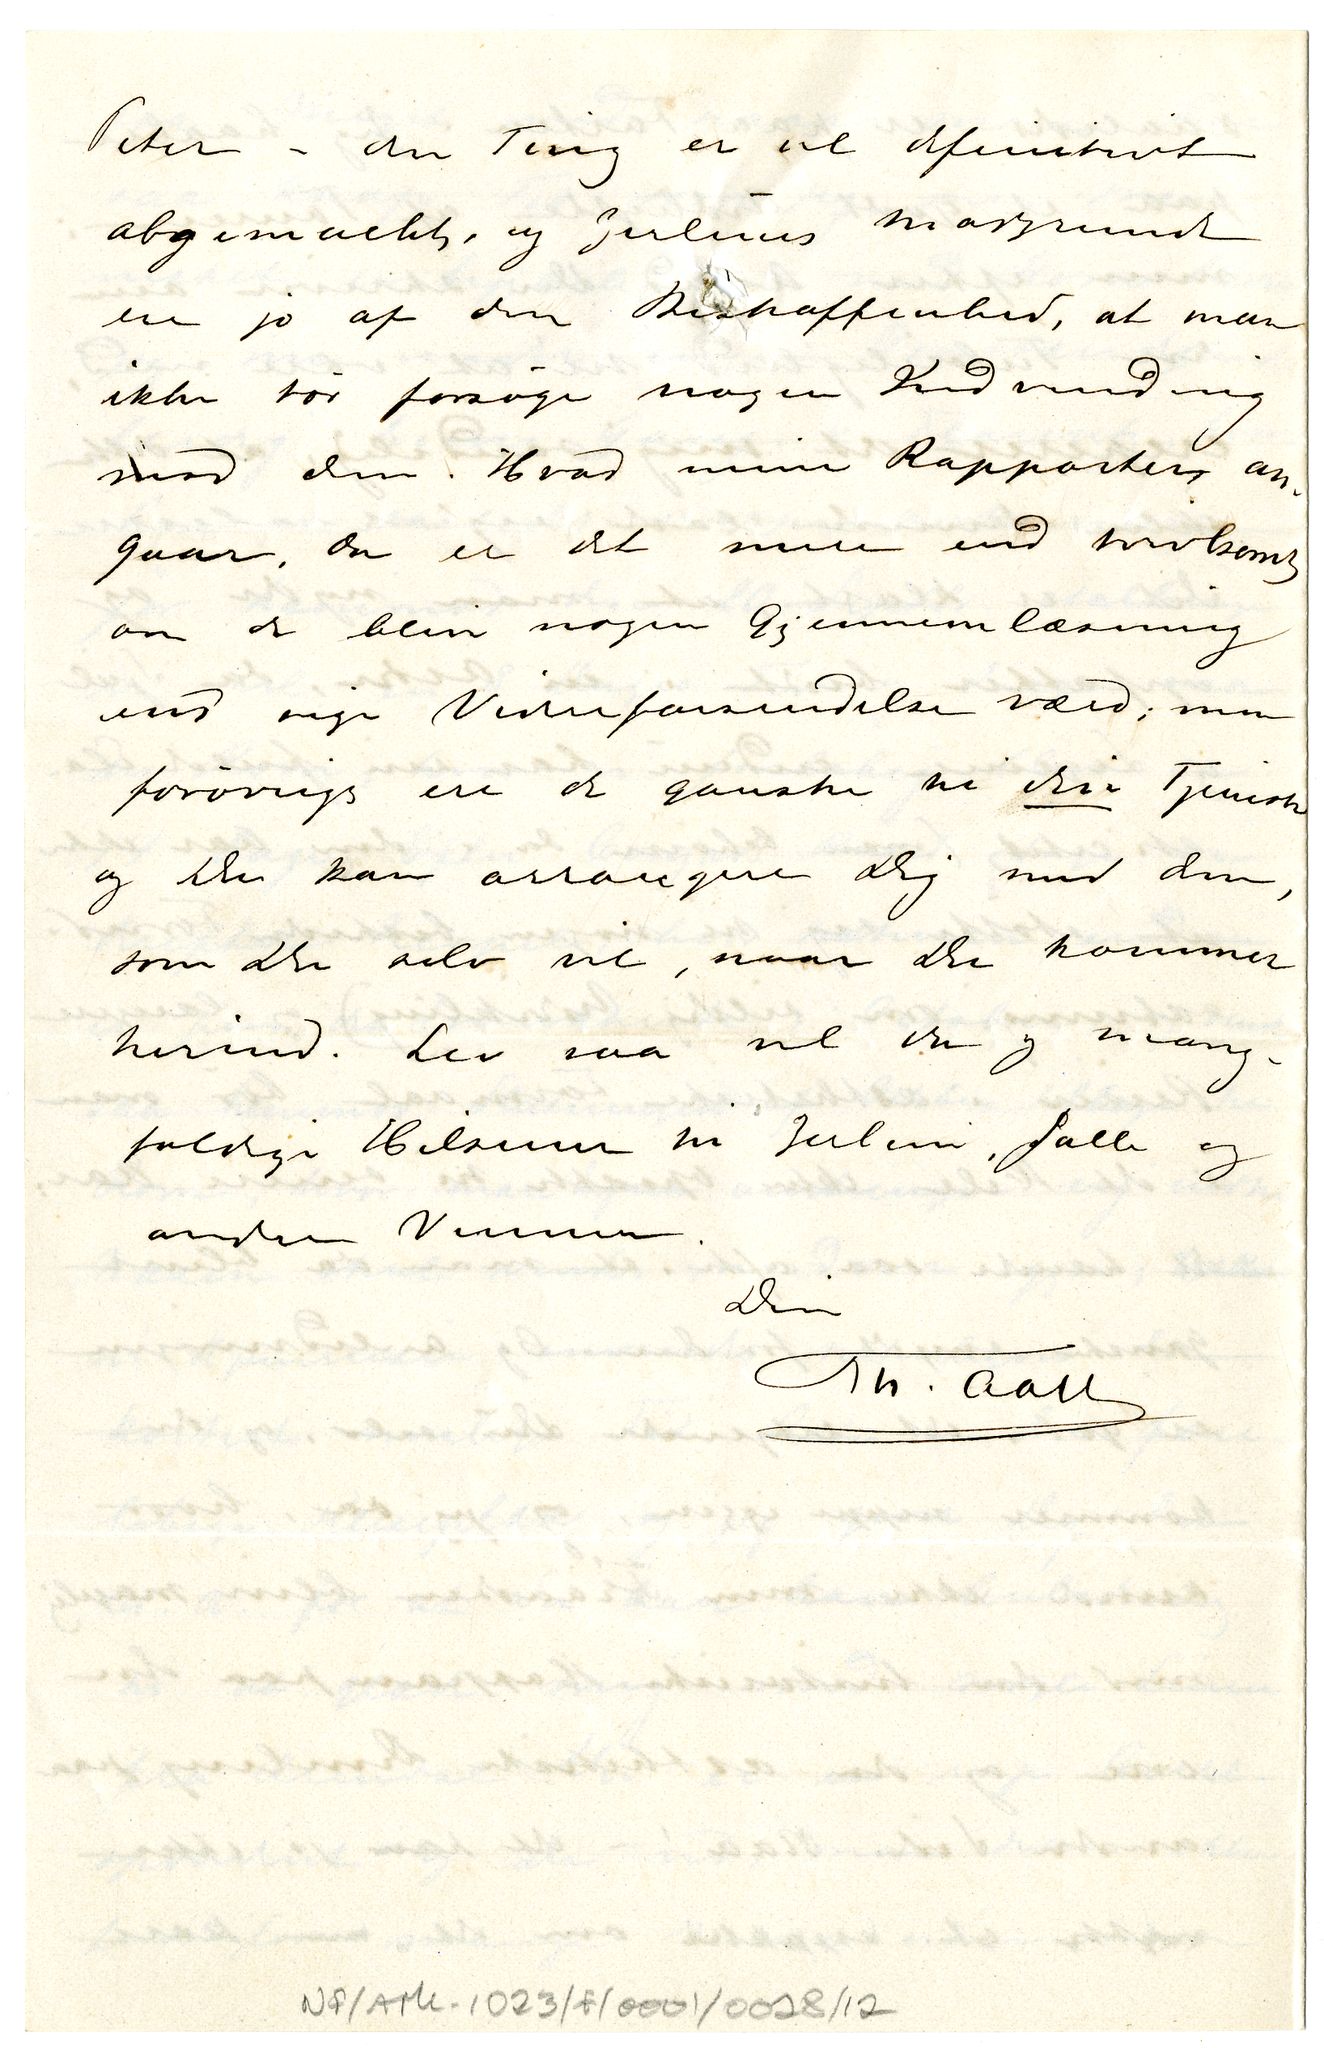 Peter – den Ting er vel definitivt
abgemacht, og Juliens Modgrunde
ere jo af den Beskaffenhed, at man
ikke tør forsøge nogen Indvending
mod dem. Hvad mine Rapporter an-
gaar, da er det mere end tvivlsomt,
om de blive nogen Gjennemlæsning
end sige Videreforsendelse værd; men
forøvrigt ere de ganske til din Tjeneste
og Du kan arrangere Dig med dem,
som Du selv vil, naar Du kommer
herind. Lev saa vel da og mang-
foldige Hilsener til Julein, Palle og
andre Venner.
Din
Th. Aall
NF/Ark-1023/F/0001/0028/12